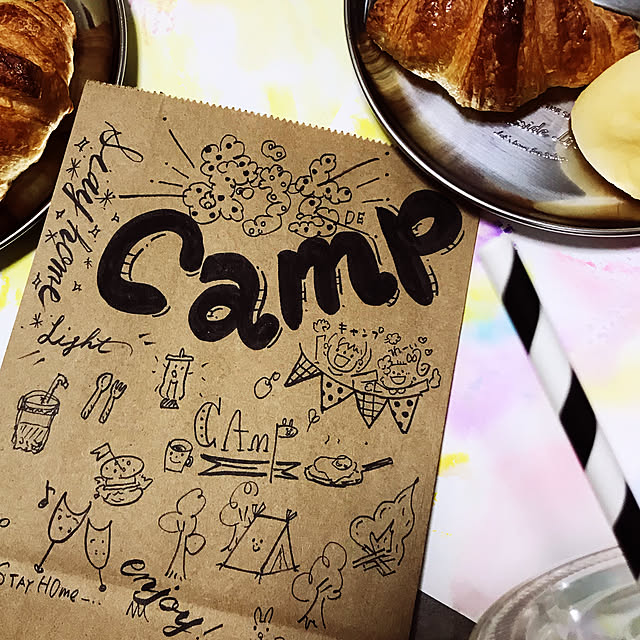 Stay home
DE
Camp
Light
キャンプ
わーい
CAmp
STAY HOme
enjoy!